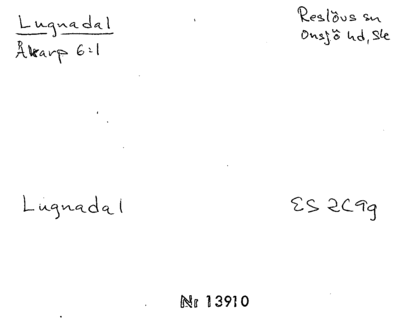 Lugnadal
Åkarp 6:1
Reslövs sn
Onsjö hd, Ske
Lugnadal
ES 2C9g
Nr 13910